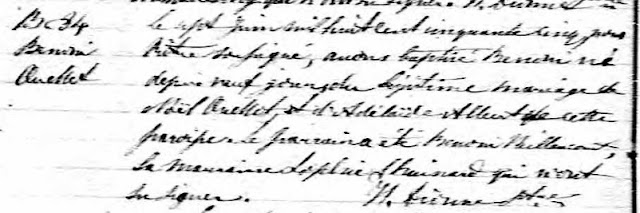 B. 34
Benoni
Ouellet
le sept Juin mil huit cent cinquante cinq, nous
Prêtre soussigné, avons baptisé Benoni né
depuis neuf jours du légitime mariage de
Noël Ouellet, et d'Adélaïde Albert de cette
paroisse. Le parrain a été Benoni Bellencourt,
la marraine Sophie qui n'ont
su signer. N. Dionne Ptre